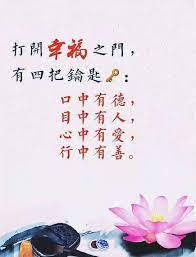 打開幸福之門，
有四把鑰匙🔑：
口中有德，
目中有人，
心中有愛，
行中有善。